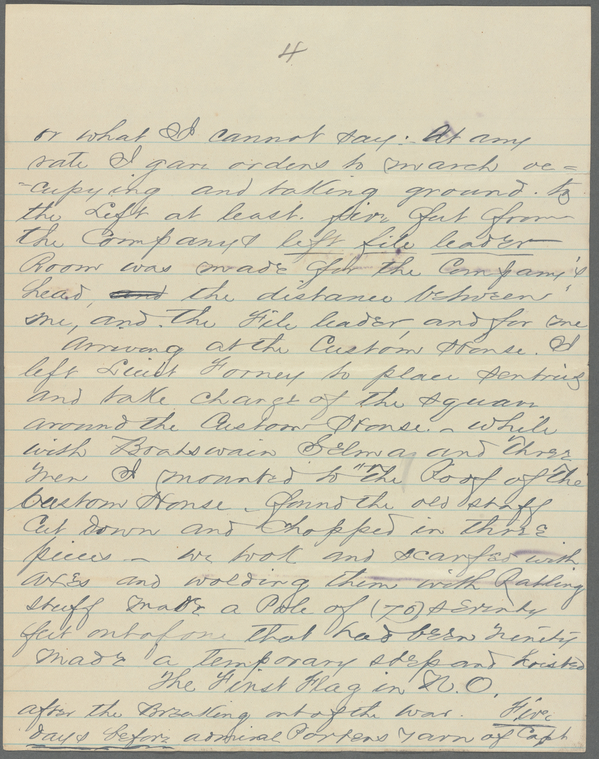 4
or what I cannot say:- At any
rate I gave orders to march oc=
=cupying and taking ground. to
the Left at least. five feet from
the Companys left file leader
Room was made for the Company's
head, and the distance between
me, and the File leader, and for me
Arriving at the Custom House. I
left Lieut Forney to place sentries
and take charge of the square
around the Custom House - while
with Boatswain Selma and three
men I mounted to the Roof of the
Custom House - found the old staff
Cut Down and Chopped in three
pieces - we took and scarfed with
axes and wolding them with Ratling
stuff made a Pole of (70) seventy
feet out of one that had been ninety
made a temporary step and hoisted
The First Flag in N.O.
after the Breaking out of the War. Five
days before admiral Porters yarn of Capt